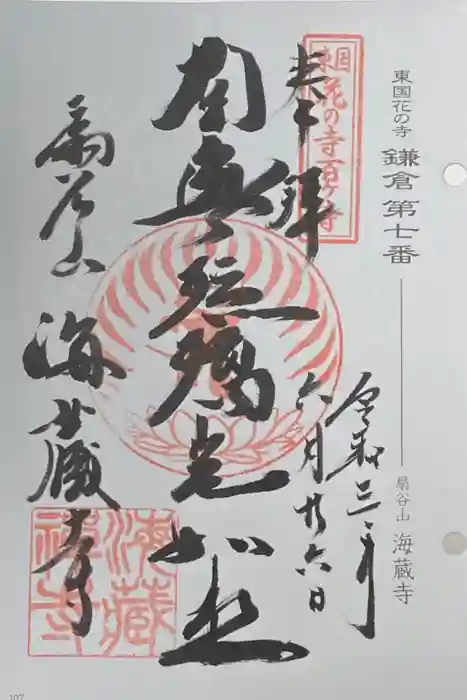 東国花の寺 鎌倉第七番 扇谷山 海蔵寺
東国
花の寺百ヶ寺
奉拝
令和三年
六月廿六日
南無瑠璃光如来
扇谷山 海蔵寺
海藏
禅寺
107